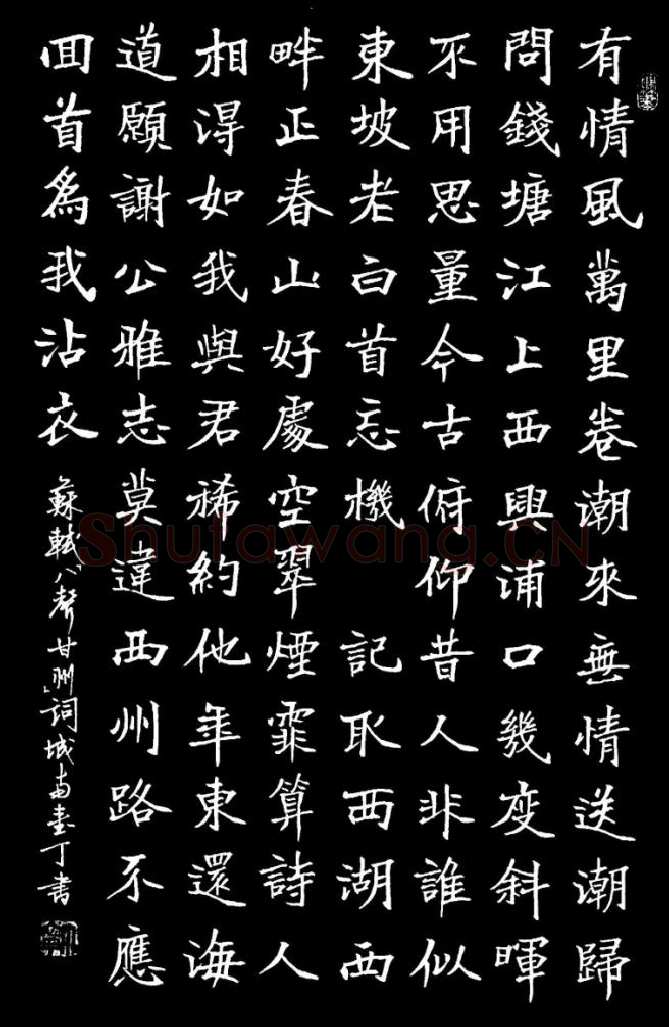 有情風萬里卷潮來無情送潮歸
問錢塘江上西興浦口幾度斜暉
不用思量今古俯仰昔人非誰似
東坡老白首忘機 記取西湖西
畔正春山好處空翠煙霏算詩人
相得如我與君稀約他年東還海
道願謝公雅志莫違西州路不應
回首為我沾衣
蘇軾「八聲甘州」詞城南丁書
Shufawang.CN